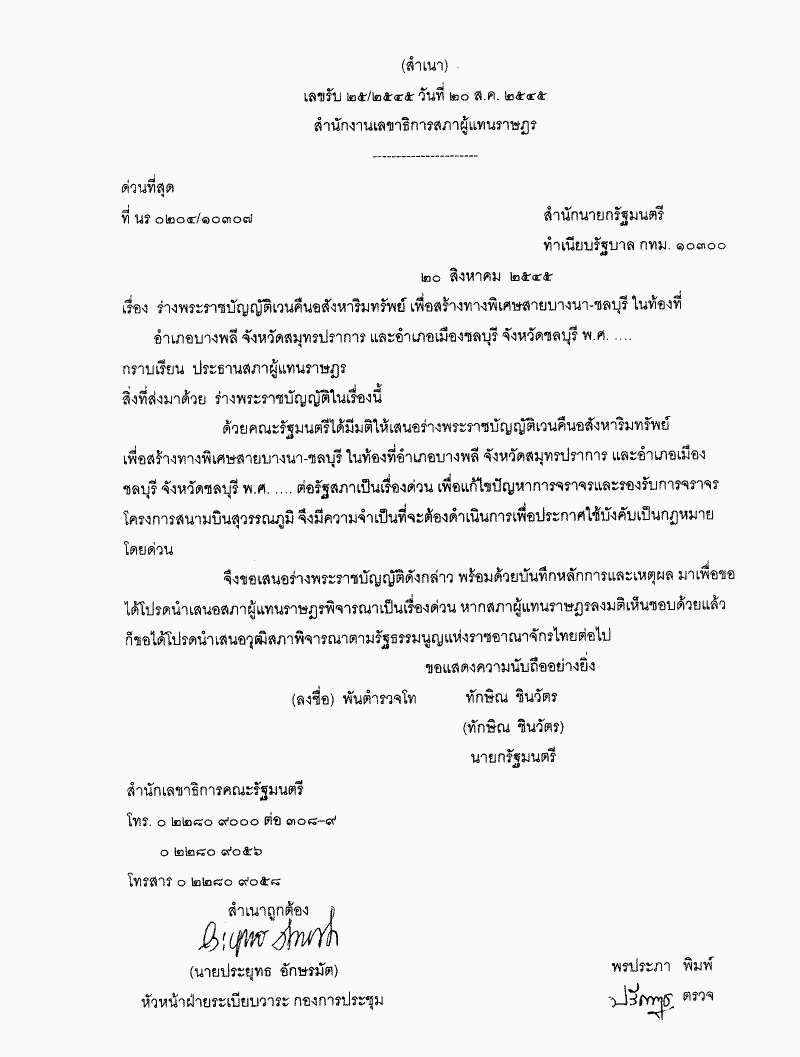 (สำเนา)
เลขรับ ๒๕/๒๕๔๕ วันที่ ๒๐ ส.ค. ๒๕๔๕
สำนักงานเลขาธิการสภาผู้แทนราษฎร
----------------------
ด่วนที่สุด
ที่ นร ๐๒๐๔/๑๐๓๐๗
สำนักนายกรัฐมนตรี
ทำเนียบรัฐบาล กทม. ๑๐๓๐๐
๒๐ สิงหาคม ๒๕๔๕
เรื่อง ร่างพระราชบัญญัติเวนคืนอสังหาริมทรัพย์ เพื่อสร้างทางพิเศษสายบางนา-ชลบุรี ในท้องที่
อำเภอบางพลี จังหวัดสมุทรปราการ และอำเภอเมืองชลบุรี จังหวัดชลบุรี พ.ศ. ....
กราบเรียน ประธานสภาผู้แทนราษฎร
สิ่งที่ส่งมาด้วย ร่างพระราชบัญญัติในเรื่องนี้
ด้วยคณะรัฐมนตรีได้มีมติให้เสนอร่างพระราชบัญญัติเวนคืนอสังหาริมทรัพย์
เพื่อสร้างทางพิเศษสายบางนา-ชลบุรี ในท้องที่อำเภอบางพลี จังหวัดสมุทรปราการ และอำเภอเมือง
ชลบุรี จังหวัดชลบุรี พ.ศ. .... ต่อรัฐสภาเป็นเรื่องด่วน เพื่อแก้ไขปัญหาการจราจรและรองรับการจราจร
โครงการสนามบินสุวรรณภูมิ จึงมีความจำเป็นที่จะต้องดำเนินการเพื่อประกาศใช้บังคับเป็นกฎหมาย
โดยด่วน
จึงขอเสนอร่างพระราชบัญญัติดังกล่าว พร้อมด้วยบันทึกหลักการและเหตุผล มาเพื่อขอ
ได้โปรดนำเสนอสภาผู้แทนราษฎรพิจารณาเป็นเรื่องด่วน หากสภาผู้แทนราษฎรลงมติเห็นชอบด้วยแล้ว
ก็ขอได้โปรดนำเสนอวุฒิสภาพิจารณาตามรัฐธรรมนูญแห่งราชอาณาจักรไทยต่อไป
ขอแสดงความนับถืออย่างยิ่ง
(ลงชื่อ) พันตำรวจโท ทักษิณ ชินวัตร
(ทักษิณ ชินวัตร)
นายกรัฐมนตรี
สำนักเลขาธิการคณะรัฐมนตรี
โทร. ๐ ๒๒๘๐ ๙๐๐๐ ต่อ ๓๐๘-๙
๐ ๒๒๘๐ ๙๐๕๖
โทรสาร ๐ ๒๒๘๐ ๙๐๕๘
สำเนาถูกต้อง
(นายประยุทธ อักษรมัต)
หัวหน้าฝ่ายระเบียบวาระ กองการประชุม
พรประภา พิมพ์
ตรวจ